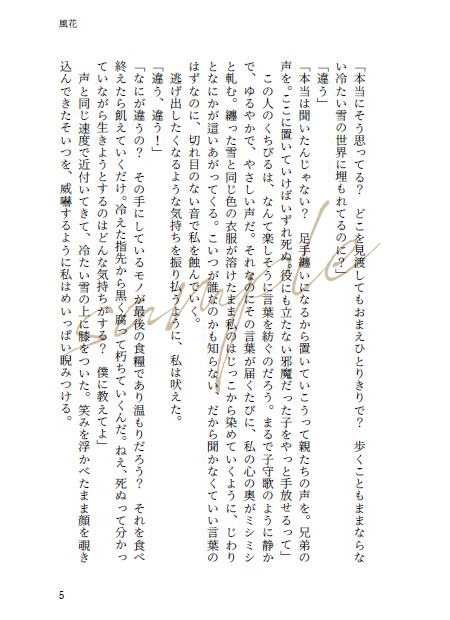 風花
「本当にそう思ってる?　どこを見渡してもおまえひとりきりで?　歩くこともままならな
い冷たい雪の世界に埋もれてるのに?」
「違う」
「本当は聞いたんじゃない?　足手纏いになるから置いていこうって親たちの声を。兄弟の
声を。ここに置いていけばいずれ死ぬ。役にも立たない邪魔だった子をやっと手放せるって」
　この人のくちびるは、なんて楽しそうに言葉を紡ぐのだろう。まるで子守歌のように静か
で、ゆるやかで、やさしい声だ。それなのにその言葉が届くたびに、私の心の奥がミシミシ
と軋む。纏った雪と同じ色の衣服が溶けたまま私のはじっこから染めていくように、じわり
となにかが這いあがってくる。こいつが誰なのかも知らない、だから聞かなくていい言葉の
はずなのに、切れ目のない音で私を蝕んでいく。
　逃げ出したくなるような気持ちを振り払うように、私は吠えた。
「違う、違う!」
「なにが違うの?　その手にしているモノが最後の食糧であり温もりだろう?　それを食べ
終えたら飢えていくだけ。冷えた指先から黒く腐って朽ちていくんだ。ねえ、死ぬって分かっ
ていながら生きようとするのはどんな気持ちがする?　僕に教えてよ」
　声と同じ速度で近付いてきて、冷たい雪の上に膝をついた。笑みを浮かべたまま顔を覗き
込んできたそいつを、威嚇するように私はめいっぱい睨みつける。
sample
5